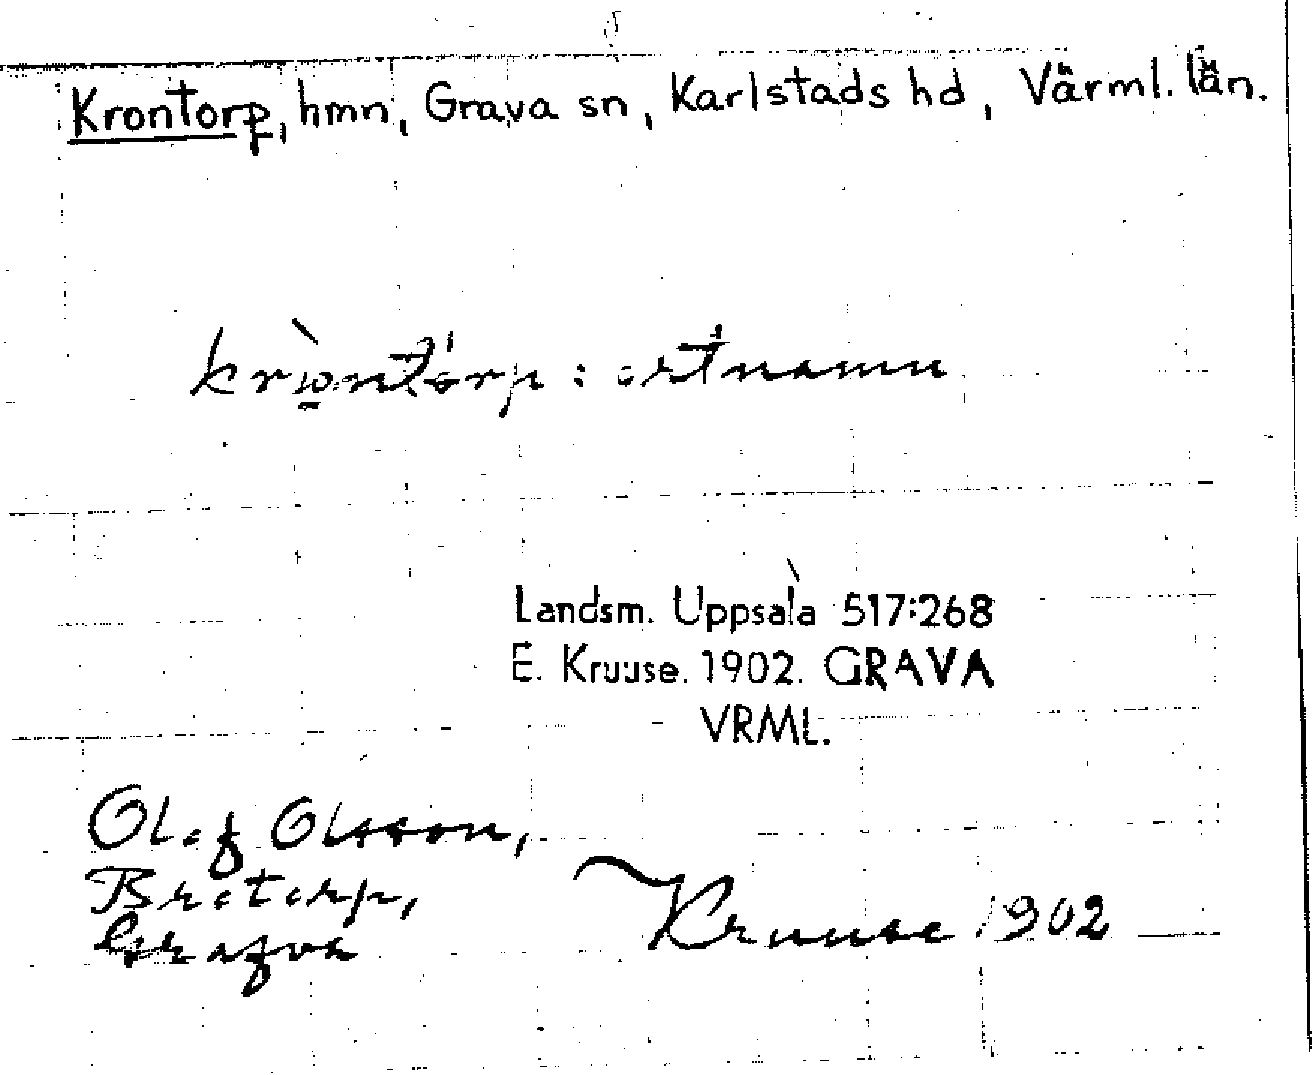 Krontorp, hmn, Grava sn, Karlstads hd, Värml. län.
kròntórp : ortnamn
Landsm. Uppsala 517:268
E. Kruuse. 1902. GRAVA
VRML.
Olof Olsson,
Brotorp,
Grafva
Kruuse 1902